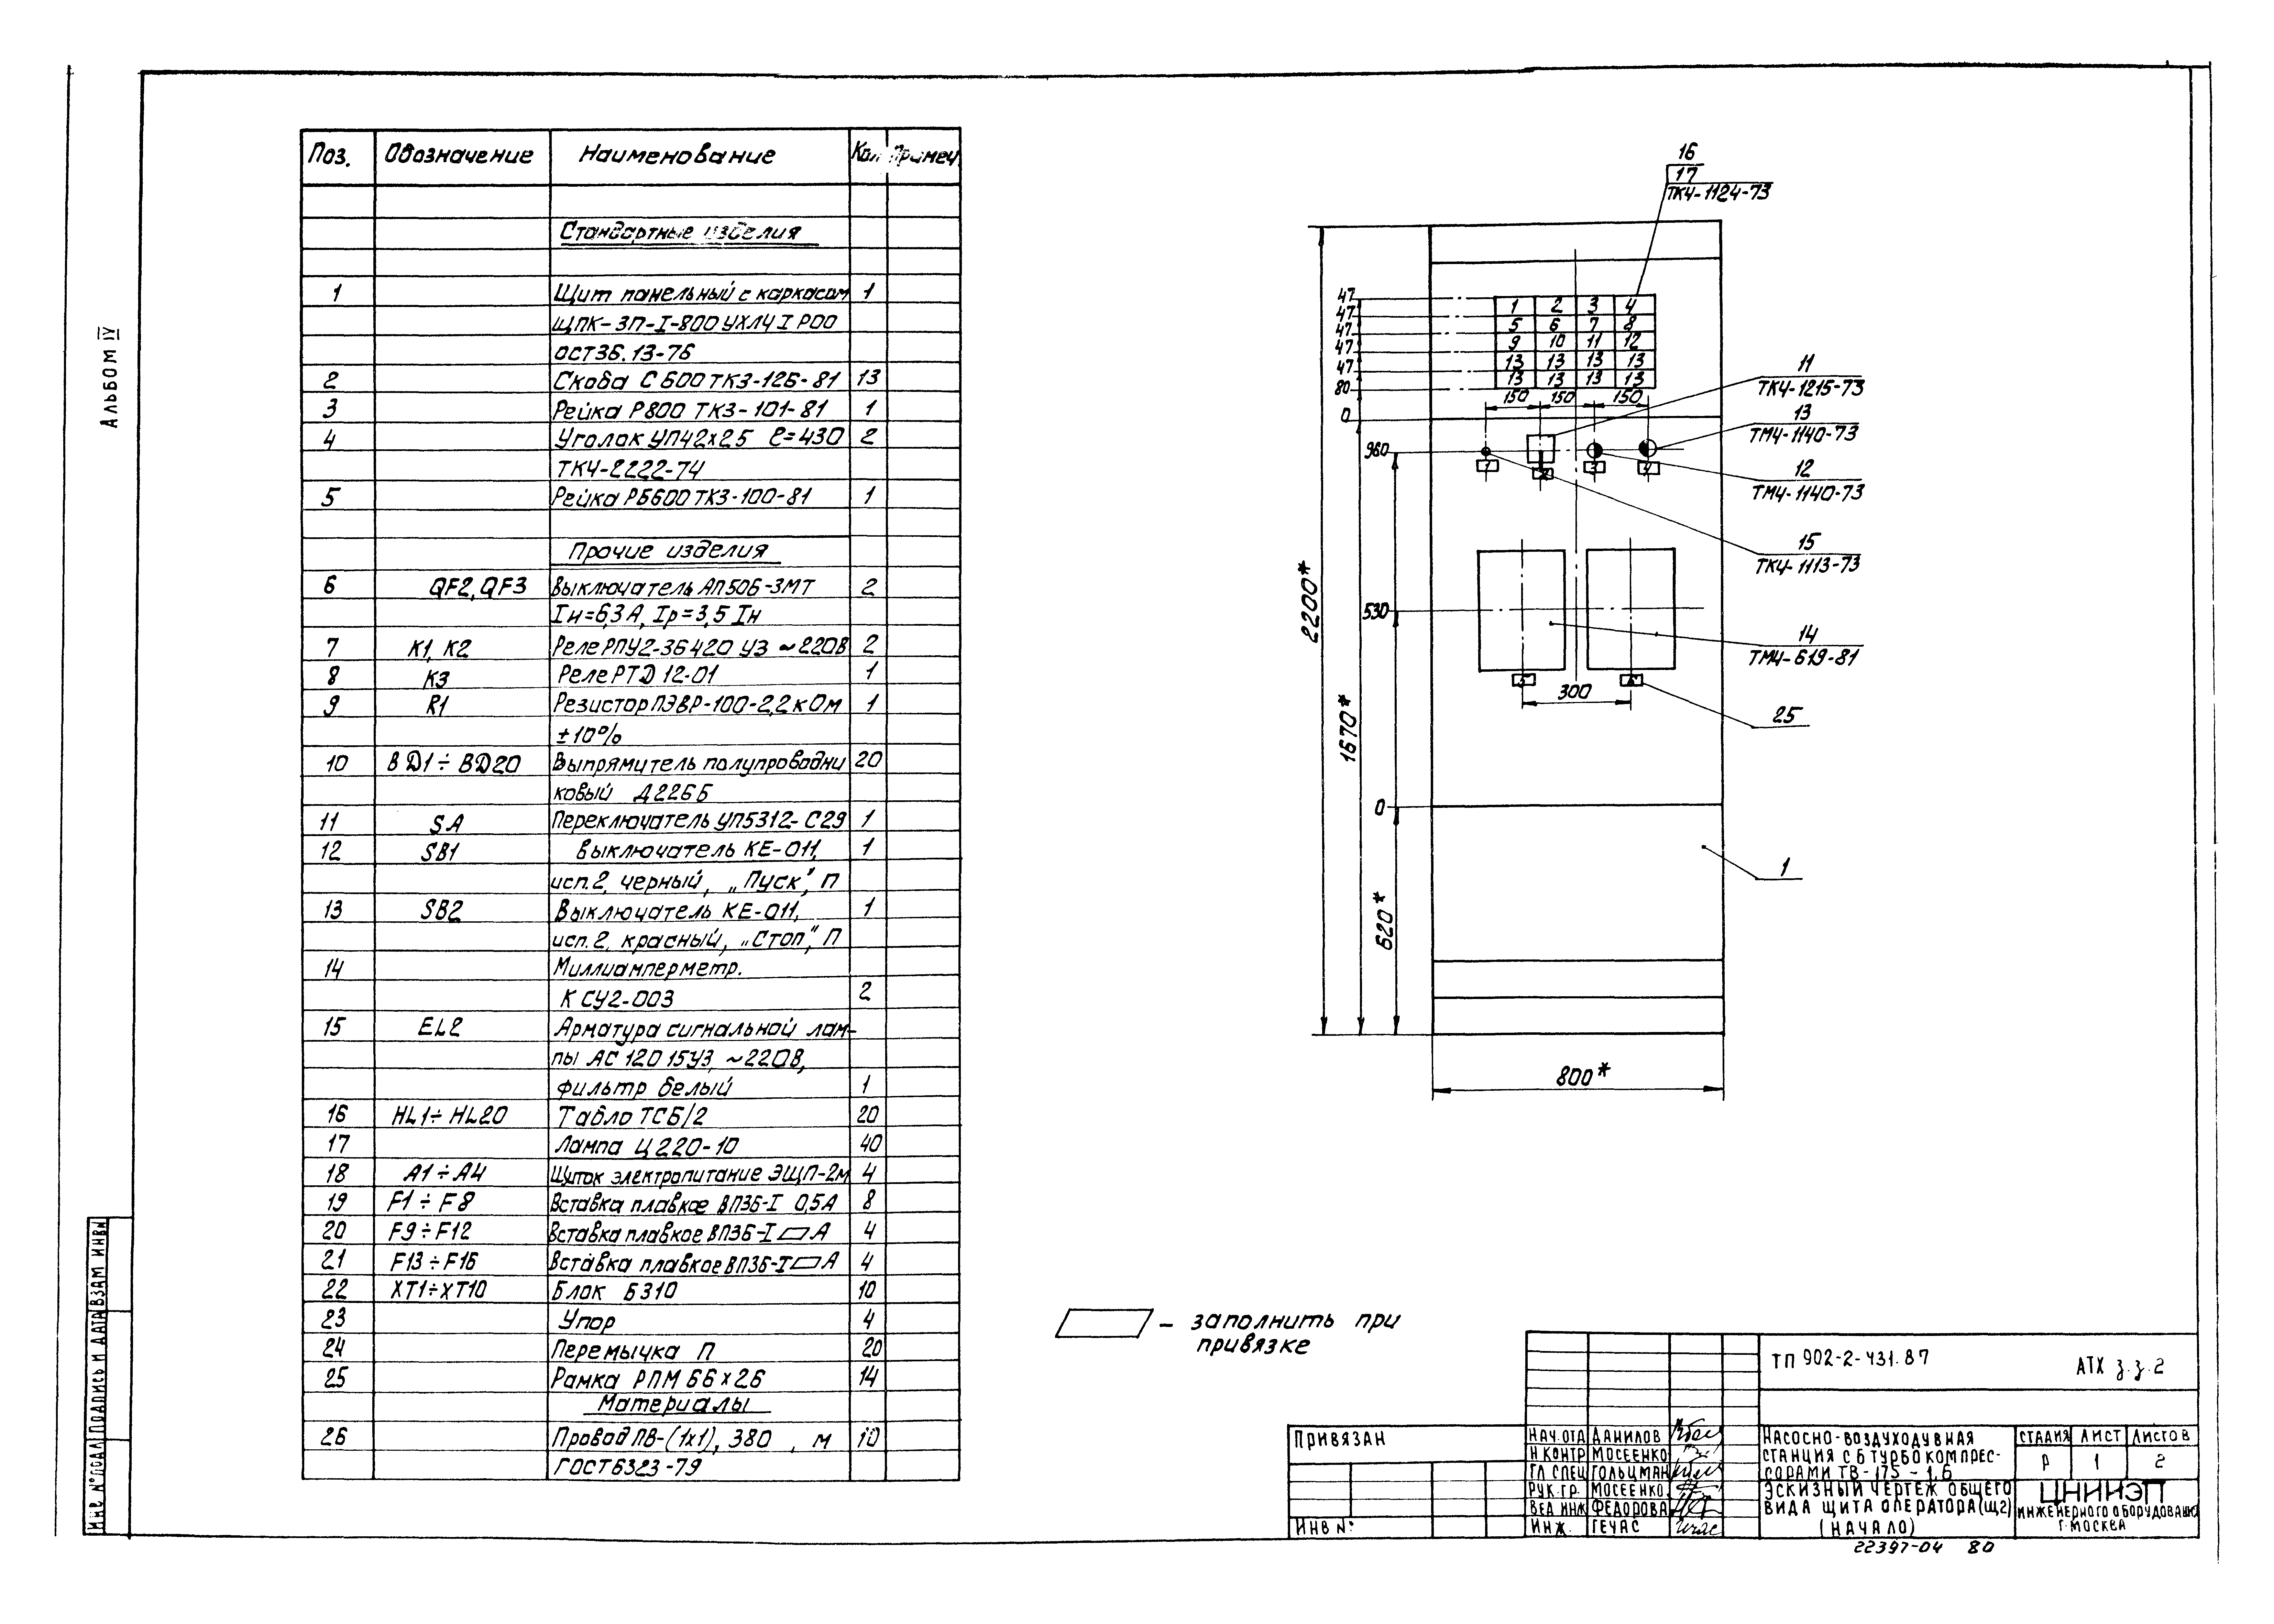 Альбом IV
Поз. Обозначение Наименование Кол Примеч.
Стандартные изделия
1 Щит панельный с каркасом 1
ЩПК-ЗП-I-800 УХЛ4 I Р00
ОСТ36.13-76
2 Скоба С 600 ТК3-126-81 13
3 Рейка Р800 ТК3-101-81 1
4 Уголок УП42х25 ℓ=430 2
ТК4-2222-74
5 Рейка РБ600 ТК3-100-81 1
Прочие изделия
6 QF2, QF3 Выключатель АП50Б-3МТ 2
Iн=6,3 А, Iр=3,5 Iн
7 К1, К2 Реле РПУ2-36420 У3 ~220В 2
8 К3 Реле РТД 12-01 1
9 R1 Резистор ПЭВР-100-2,2 кОм 1
±10%
10 ВД1÷ВД20 Выпрямитель полупроводни 20
ковый Д226Б
11 SA Переключатель УП5312-С29 1
12 SB1 Выключатель КЕ-011, 1
исп.2, черный, „Пуск”, П
13 SB2 Выключатель КЕ-011, 1
исп.2, красный, „Стоп”, П
14 Миллиамперметр.
КСУ2-003 2
15 EL2 Арматура сигнальной лам-
пы АС 120 15У3, ~220В,
фильтр белый 1
16 HL1÷HL20 Табло ТСБ/2 20
17 Лампа Ц220-10 40
18 А1÷А4 Щиток электропитание ЭЩП-2м 4
19 F1÷F8 Вставка плавкое ВП3Б-I 0,5А 8
20 F9÷F12 Вставка плавкое ВП3Б-I А 4
21 F13÷F16 Вставка плавкое ВП3Б-I А 4
22 ХТ1÷ХТ10 Блок Б310 10
23 Упор 4
24 Перемычка П 20
25 Рамка РПМ 66×26 14
Материалы
26 Провод ПВ-(1х1), 380 , м 10
ГОСТ 6323-79
16
17
ТК4-1124-73
47
47
47
47
47
80
0
1 2 3 4
5 6 7 8
9 10 11 12
13 13 13 13
13 13 13 13
150 150 150
11
ТК4-1215-73
13
ТМ4-1140-73
12
ТМ4-1140-73
15
ТК4-1113-73
14
ТМ4-619-81
25
1
960
530
0
1 2 3 4
5 6
300
2200*
1670*
620*
800*
– заполнить при
привязке
ТП 902-2-431.87 АТХ з.з.2
Привязан
Инв №:
Нач.отд Данилов
Н.контр Мосеенко
Гл спец Гольцман
Рук.гр. Мосеенко
Вед инж Федорова
Инж. Гечас
Насосно-воздуходувная
станция с 6 турбокомпрес-
сорами ТВ-175-1,6
Эскизный чертеж общего
вида щита оператора (щ2)
(начало)
Стадия Лист Листов
Р 1 2
ЦНИИЭП
инженерного оборудования
г. Москва
22397-04 80
Инв № подл Подпись и дата Взам инв №